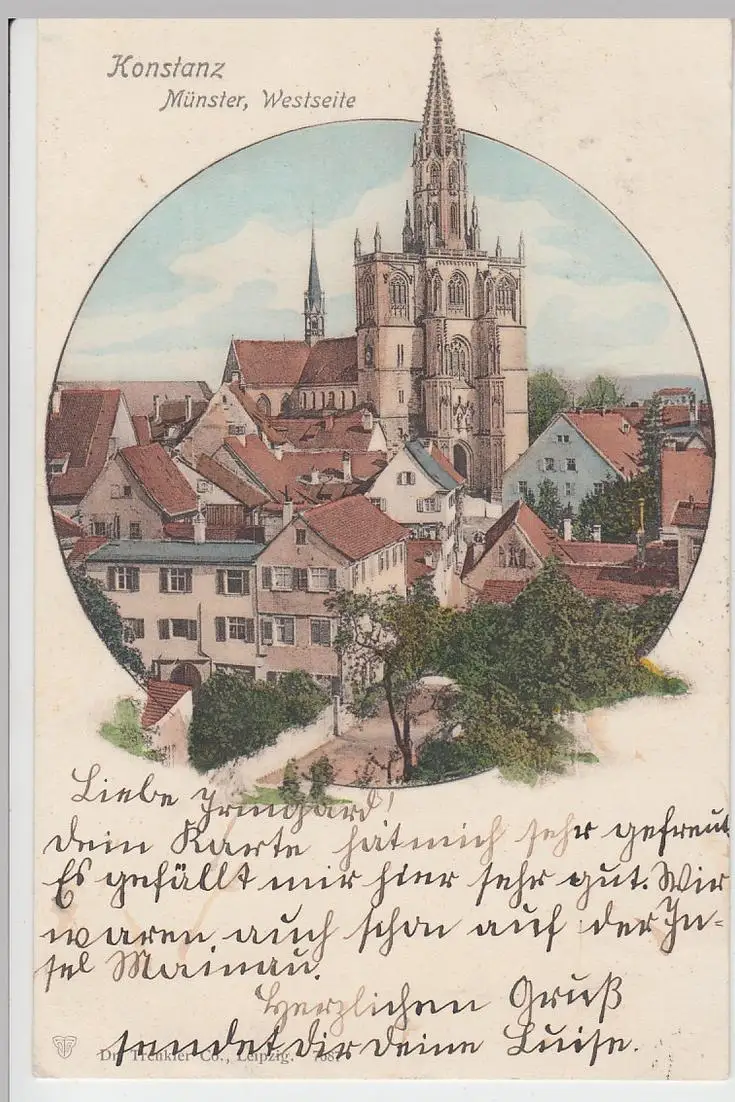 Konstanz
Münster, Westseite
Liebe Irmgard!
dein Karte hat mich sehr gefreut
Es gefällt mir hier sehr gut. Wir
waren auch schon auf der In-
sel Mainau.
Herzlichen Gruß
sendet dir deine Luise.
Dr. Trenkler Co., Leipzig.